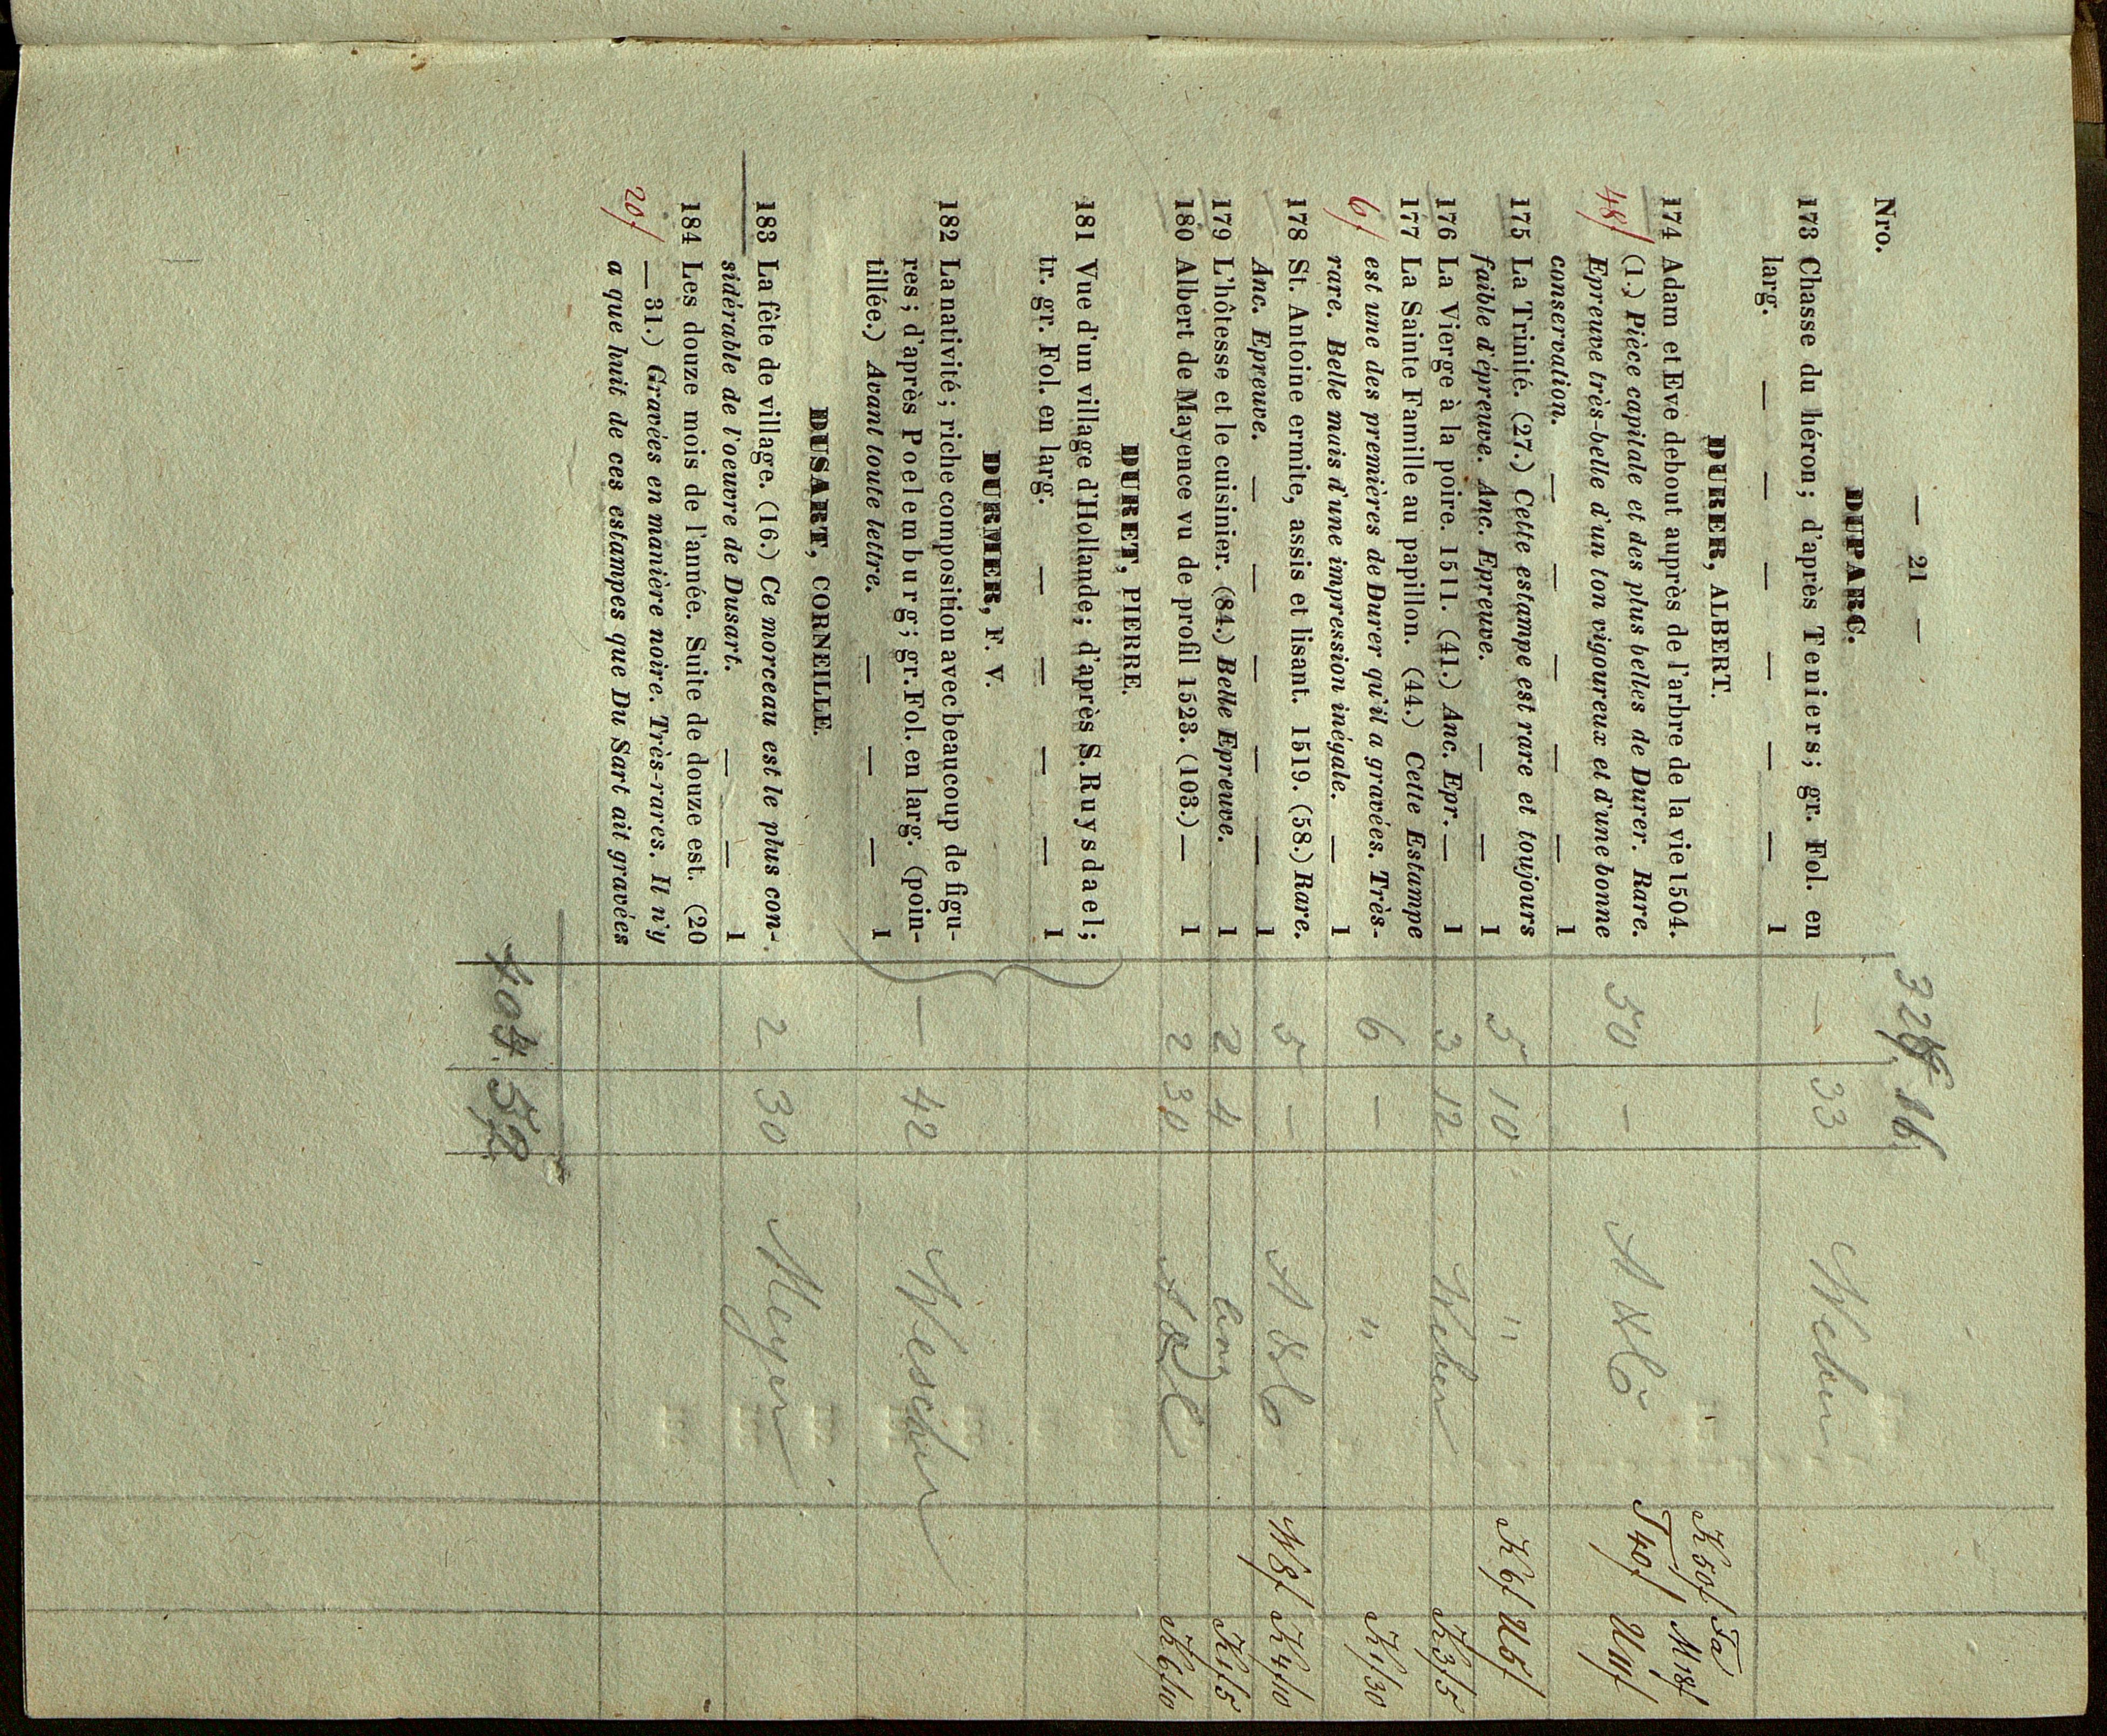 — 21 —
325. 16
Nro.
DUPARC.
173 Chasse du héron; d'après Teniers; gr. Fol. en
larg. — — — — — — 1 — 33 Weber
DURER, ALBERT.
174 Adam et Eve debout auprès de l'arbre de la vie 1504.
(1.) Pièce capitale et des plus belles de Durer. Rare.
48f Epreuve très-belle d'un ton vigoureux et d'une bonne
conservation. — — — — — 1 50 —
K 50f Fa
T 40f M 18f
U 11f
175 La Trinité. (27.) Cette estampe est rare et toujours
faible d'épreuve. Anc. Epreuve. — — 1 5 10 " K 6f U 5f
176 La Vierge à la poire. 1511. (41.) Anc. Epr. — 1 3 12 Weber K 3/5
177 La Sainte Famille au papillon. (44.) Cette Estampe
6f est une des premières de Durer qu'il a gravées. Très-
rare. Belle mais d'une impression inégale. — 1 6 — " K 1/30
178 St. Antoine ermite, assis et lisant. 1519. (58.) Rare.
Anc. Epreuve. — — — — — 1 5 — W 8f K 4/10
179 L'hôtesse et le cuisinier. (84.) Belle Epreuve. 1 2 4 K 1/5
180 Albert de Mayence vu de profil 1523. (103.) — 1 2 30 K 6/10
DURET, PIERRE.
181 Vue d'un village d'Hollande; d'après S. Ruysdael;
tr. gr. Fol. en larg. — — — — 1
DURMER, F. V.
182 La nativité; riche composition avec beaucoup de figu-
res; d'après Poelemburg; gr. Fol. en larg. (poin-
tillée.) Avant toute lettre. — — — 1 — 42
DUSART, CORNEILLE.
183 La fête de village. (16.) Ce morceau est le plus con-
sidérable de l'oeuvre de Dusart. — — 1 2 30 Meyer
184 Les douze mois de l'année. Suite de douze est. (20
20f — 31.) Gravées en manière noire. Très-rares. Il n'y
a que huit de ces estampes que Du Sart ait gravées